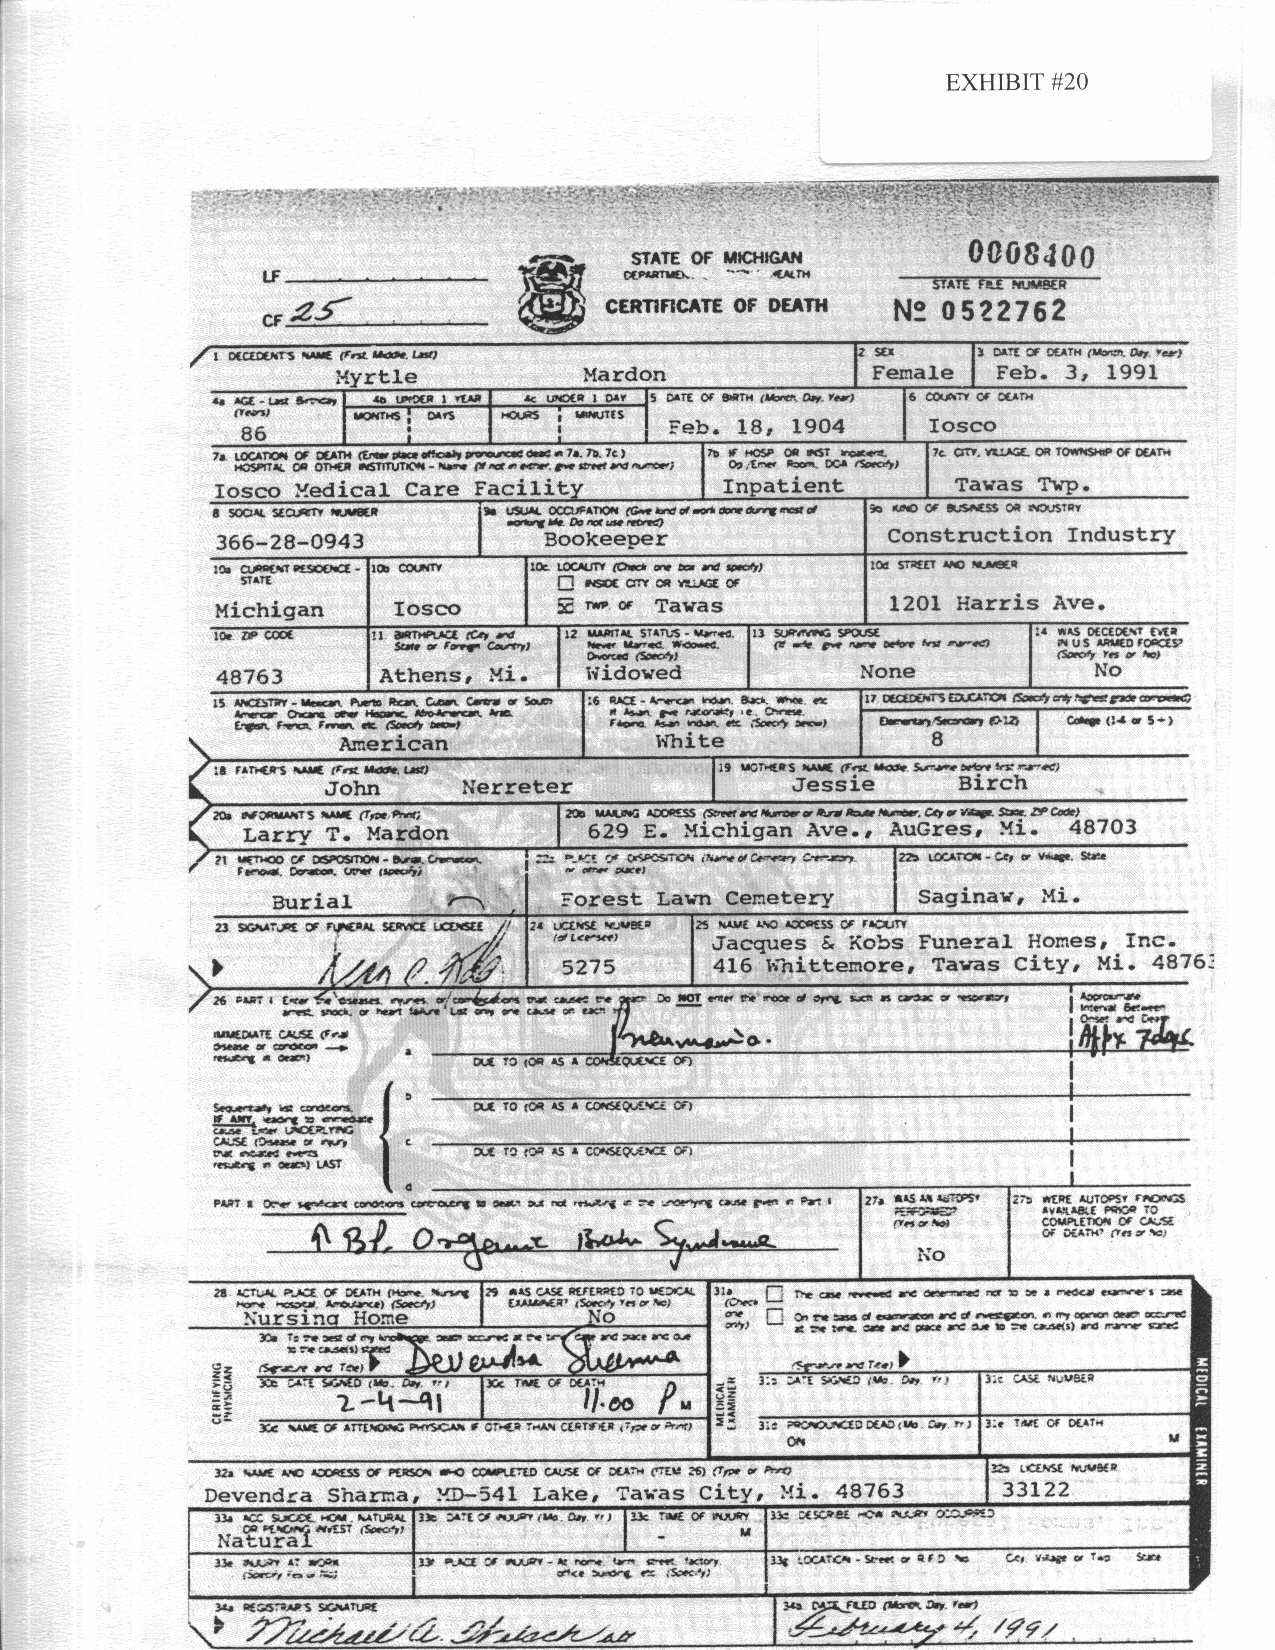 EXHIBIT #20
STATE OF MICHIGAN
0008400
LF
STATE FILE NUMBER
CERTIFICATE OF DEATH
CF 25
Nº 0522762
1 DECEDENT'S NAME (First, Middle, Last)
2 SEX
3 DATE OF DEATH (Month, Day, Year)
Myrtle Mardon
Female
Feb. 3, 1991
4a AGE - Last Birthday (Years)
4b UNDER 1 YEAR
4c UNDER 1 DAY
5 DATE OF BIRTH (Month, Day, Year)
6 COUNTY OF DEATH
MONTHS DAYS HOURS MINUTES
86
Feb. 18, 1904
Iosco
7a. LOCATION OF DEATH (Enter place officially pronounced dead in 7a, 7b, 7c)
HOSPITAL OR OTHER INSTITUTION - Name (If not in either, give street and number)
7b IF HOSP OR INST Inpatient,
Op/Emer Room, DOA (Specify)
7c. CITY, VILLAGE, OR TOWNSHIP OF DEATH
Iosco Medical Care Facility
Inpatient
Tawas Twp.
8 SOCIAL SECURITY NUMBER
9a USUAL OCCUPATION (Give kind of work done during most of
working life. Do not use retired)
9b KIND OF BUSINESS OR INDUSTRY
366-28-0943
Bookeeper
Construction Industry
10a CURRENT RESIDENCE - STATE
10b COUNTY
10c LOCALITY (Check one box and specify)
10d STREET AND NUMBER
INSIDE CITY OR VILLAGE OF
Michigan
Iosco
TWP. OF Tawas
1201 Harris Ave.
10e ZIP CODE
11 BIRTHPLACE (City and
State or Foreign Country)
12 MARITAL STATUS - Married,
Never Married, Widowed,
Divorced (Specify)
13 SURVIVING SPOUSE
(If wife, give name before first married)
14 WAS DECEDENT EVER
IN U S ARMED FORCES?
(Specify Yes or No)
48763
Athens, Mi.
Widowed
None
No
15 ANCESTRY - Mexican, Puerto Rican, Cuban, Central or South
American, Chicano, other Hispanic, Afro-American, Arab,
English, French, Finnish, etc. (Specify below)
16 RACE - American Indian, Black, White, etc
If Asian, give nationality i.e., Chinese,
Filipino, Asian Indian, etc (Specify below)
17 DECEDENT'S EDUCATION (Specify only highest grade completed)
Elementary/Secondary (0-12)
College (1-4 or 5+)
American
White
8
18 FATHER'S NAME (First, Middle, Last)
19 MOTHER'S NAME (First, Middle, Surname before first married)
John Nerreter
Jessie Birch
20a INFORMANT'S NAME (Type/Print)
20b MAILING ADDRESS (Street and Number or Rural Route Number, City or Village, State, ZIP Code)
Larry T. Mardon
629 E. Michigan Ave., AuGres, Mi. 48703
21 METHOD OF DISPOSITION - Burial, Cremation,
Removal, Donation, Other (specify)
22a PLACE OF DISPOSITION (Name of Cemetery, Crematory,
or other place)
22b LOCATION - City or Village, State
Burial
Forest Lawn Cemetery
Saginaw, Mi.
23 SIGNATURE OF FUNERAL SERVICE LICENSEE
24 LICENSE NUMBER
(of Licensee)
25 NAME AND ADDRESS OF FACILITY
5275
Jacques & Kobs Funeral Homes, Inc.
416 Whittemore, Tawas City, Mi. 48763
26 PART I Enter the diseases, injuries, or complications that caused the death. Do NOT enter the mode of dying, such as cardiac or respiratory
arrest, shock, or heart failure. List only one cause on each line
Approximate
Interval Between
Onset and Death
IMMEDIATE CAUSE (Final
disease or condition
resulting in death)
a Pneumonia.
Appx 7days
DUE TO (OR AS A CONSEQUENCE OF)
b
DUE TO (OR AS A CONSEQUENCE OF)
Sequentially list conditions,
IF ANY, leading to immediate
cause. Enter UNDERLYING
CAUSE (Disease or injury
that initiated events
resulting in death) LAST
c
DUE TO (OR AS A CONSEQUENCE OF)
d
PART II Other significant conditions contributing to death but not resulting in the underlying cause given in Part I
27a WAS AN AUTOPSY
PERFORMED?
(Yes or No)
27b WERE AUTOPSY FINDINGS
AVAILABLE PRIOR TO
COMPLETION OF CAUSE
OF DEATH? (Yes or No)
↑ BP. Organic Brain Syndrome
No
28 ACTUAL PLACE OF DEATH (Home, Nursing
Home, Hospital, Ambulance) (Specify)
29 WAS CASE REFERRED TO MEDICAL
EXAMINER? (Specify Yes or No)
31a
(Check
one
only)
The case reviewed and determined not to be a medical examiner's case
On the basis of examination and of investigation, in my opinion death occurred
at the time, date and place and due to the cause(s) and manner stated
Nursing Home
No
30a To the best of my knowledge, death occurred at the time, date and place and due
to the cause(s) stated
(Signature and Title) Devendra Sharma
(Signature and Title)
CERTIFYING PHYSICIAN
30b DATE SIGNED (Mo., Day, Yr)
2-4-91
30c TIME OF DEATH
11.00 P M
MEDICAL EXAMINER
31b DATE SIGNED (Mo., Day, Yr)
31c CASE NUMBER
30d NAME OF ATTENDING PHYSICIAN IF OTHER THAN CERTIFIER (Type or Print)
31d PRONOUNCED DEAD (Mo., Day, Yr)
ON
31e TIME OF DEATH
M
MEDICAL EXAMINER
32a NAME AND ADDRESS OF PERSON WHO COMPLETED CAUSE OF DEATH (ITEM 26) (Type or Print)
32b LICENSE NUMBER
Devendra Sharma, MD-541 Lake, Tawas City, Mi. 48763
33122
33a ACC, SUICIDE, HOM, NATURAL
OR PENDING INVEST (Specify)
33b DATE OF INJURY (Mo., Day, Yr)
33c TIME OF INJURY
M
33d DESCRIBE HOW INJURY OCCURRED
Natural
33e INJURY AT WORK
(Specify Yes or No)
33f PLACE OF INJURY - At home, farm, street, factory,
office building, etc (Specify)
33g LOCATION - Street or R.F.D No City, Village or Twp State
34a REGISTRAR'S SIGNATURE
34b DATE FILED (Month, Day, Year)
February 4, 1991